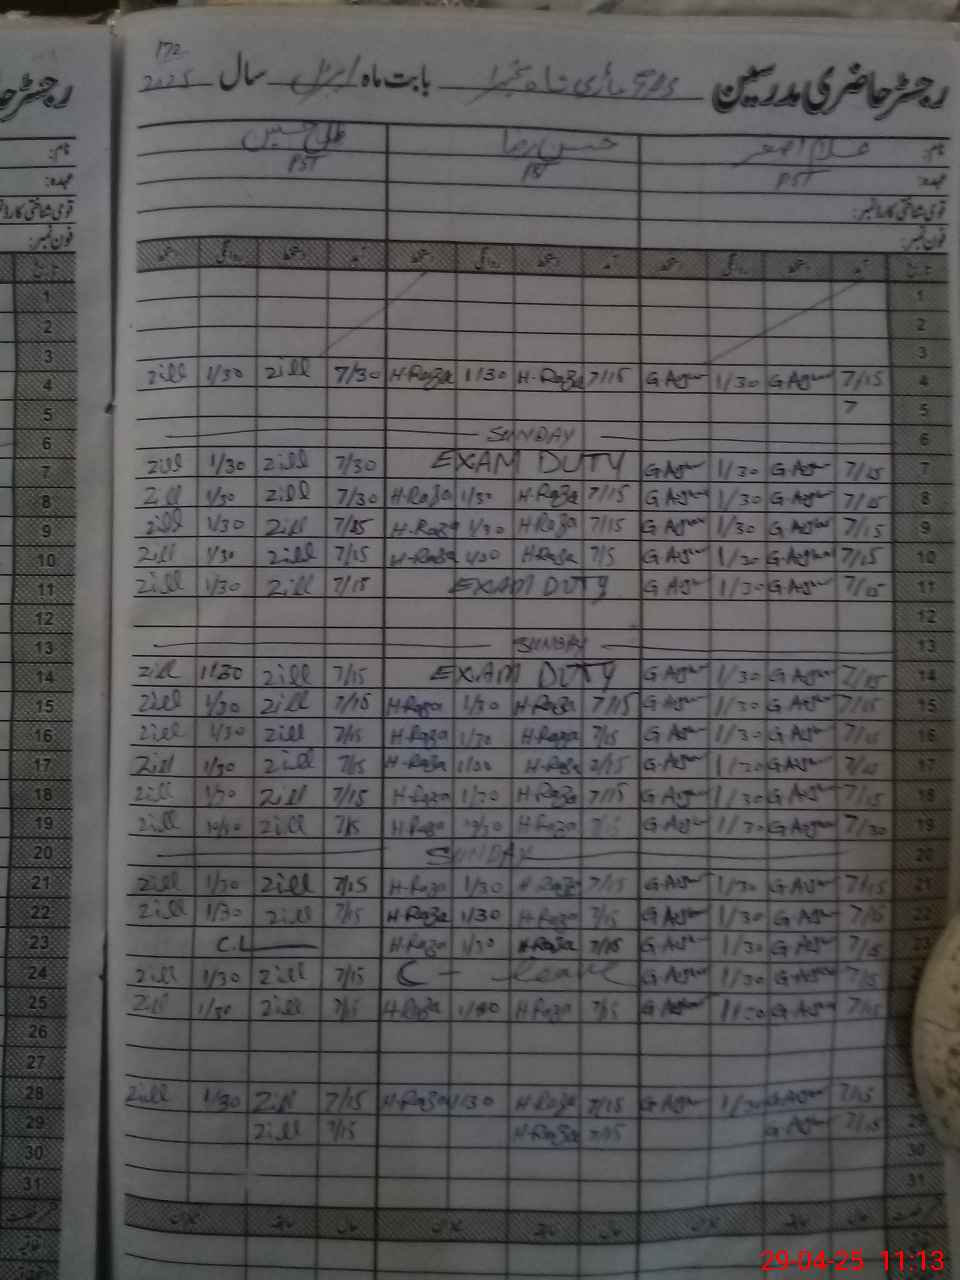 172
رجسٹر حاضری مدرسین بابت ماہ اپریل سال 2025
نام: غلام اصغر حسن رضا ظل حسین
عہدہ: PST PST PST
قومی شناختی کارڈ نمبر:
فون نمبر:
1
2
3
Zill 1/30 Zill 7/30 H-Raza 1/30 H-Raza 7/15 G Asgar 1/30 G Asgar 7/15 4
7 5
SUNDAY 6
Zill 1/30 Zill 7/30 EXAM DUTY G Asgar 1/30 G Asgar 7/15 7
Zill 1/30 Zill 7/30 H-Raza 1/30 H-Raza 7/15 G Asgar 1/30 G Asgar 7/15 8
Zill 1/30 Zill 7/15 H-Raza 1/30 H-Raza 7/15 G Asgar 1/30 G Asgar 7/15 9
Zill 1/30 Zill 7/15 H-Raza 1/30 H-Raza 7/5 G Asgar 1/30 G Asgar 7/15 10
Zill 1/30 Zill 7/15 EXAM DUTY G Asgar 1/30 G Asgar 7/15 11
12
SUNDAY 13
Zill 1/30 Zill 7/15 EXAM DUTY G Asgar 1/30 G Asgar 7/15 14
Zill 1/30 Zill 7/15 H-Raza 1/30 H-Raza 7/15 G Asgar 1/30 G Asgar 7/15 15
Zill 1/30 Zill 7/15 H-Raza 1/30 H-Raza 7/15 G Asgar 1/30 G Asgar 7/15 16
Zill 1/30 Zill 7/15 H-Raza 1/30 H-Raza 7/15 G Asgar 1/30 G Asgar 7/15 17
Zill 1/30 Zill 7/15 H-Raza 1/30 H-Raza 7/15 G Asgar 1/30 G Asgar 7/15 18
Zill Zill 7/15 H-Raza H-Raza 7/15 G Asgar 1/30 G Asgar 7/30 19
SUNDAY 20
Zill 1/30 Zill 7/15 H-Raza 1/30 H-Raza 7/15 G Asgar 1/30 G Asgar 7/15 21
Zill 1/30 Zill 7/15 H-Raza 1/30 H-Raza 7/15 G Asgar 1/30 G Asgar 7/15 22
C.L H-Raza 1/30 H-Raza 7/15 G Asgar 1/30 G Asgar 7/15 23
Zill 1/30 Zill 7/15 C - leave G Asgar 1/30 G Asgar 7/15
Zill 1/30 Zill 7/15 H-Raza 1/30 H-Raza 7/15 G Asgar 1/30 G Asgar 7/15
26
27
Zill 1/30 Zill 7/15 H-Raza 1/30 H-Raza 7/15 G Asgar 1/30 G Asgar 7/15
Zill 7/15 H-Raza 7/15 G Asgar 7/15 29
30
31
29-04-25 11:13